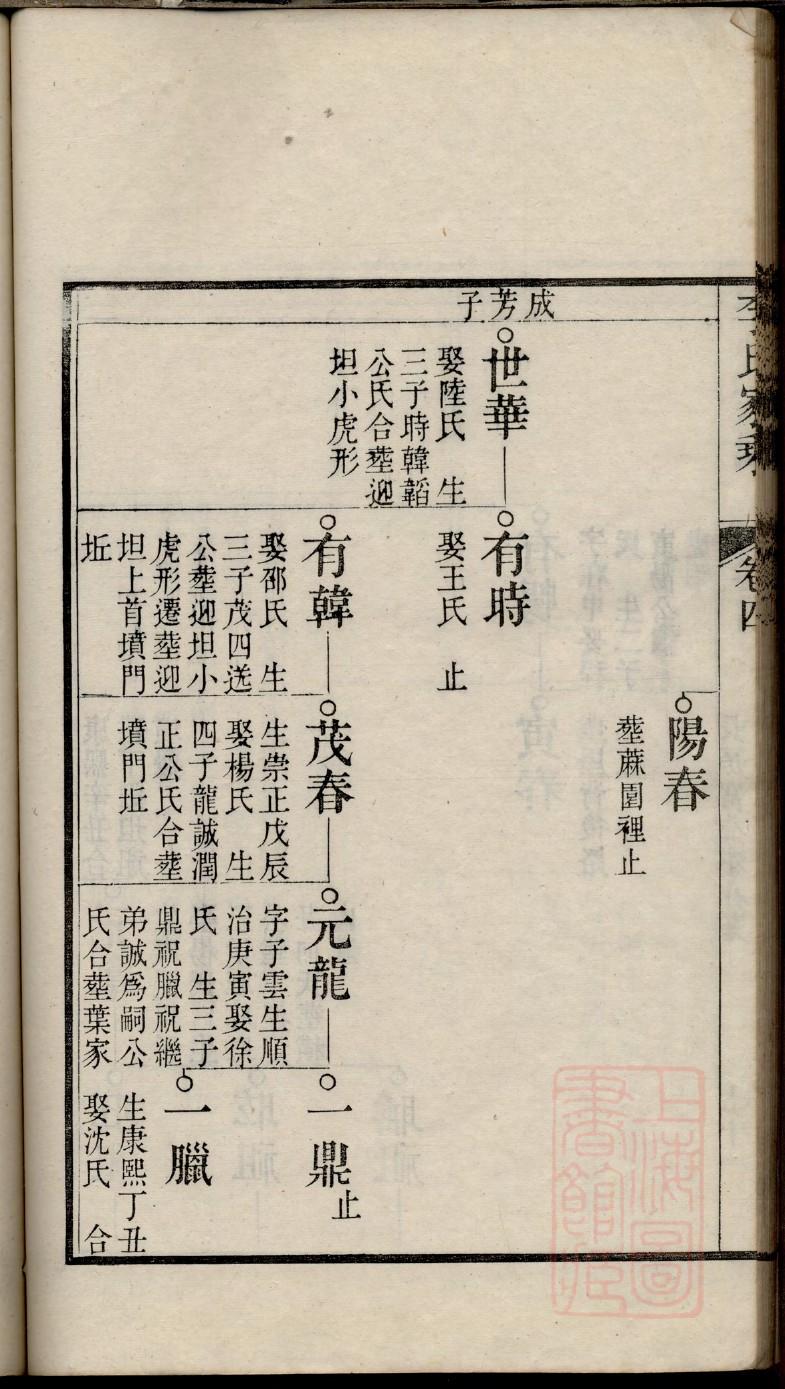 李氏家乘
卷四
陽春
塟蔴園裡止
成芳子
世華
娶陸氏　生
三子時韓韜
公氏合塟迎
坦小虎形
有時
娶王氏　止
有韓
娶邵氏　生
三子茂四送
公塟迎坦小
虎形遷塟迎
坦上首墳門
坵
茂春
生崇正戊辰
娶楊氏　生
四子龍誠潤
正公氏合塟
墳門坵
元龍
字子雲生順
治庚寅娶徐
氏　生三子
鼎祝臘祝繼
弟誠爲嗣公
氏合塟葉家
一鼎
止
一臘
生康熙丁丑
娶沈氏　合
上海圖
書館藏